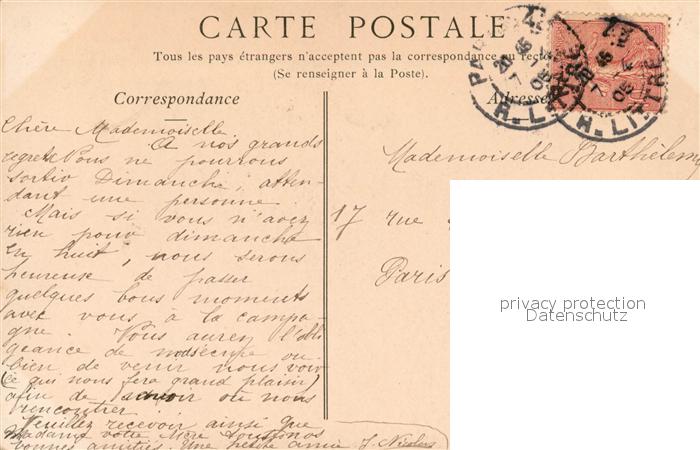 CARTE POSTALE
Tous les pays étrangers n'acceptent pas la correspondance au recto
(Se renseigner à la Poste).
Correspondance
Adresse
PARIS
20 45
7 05
R. LITTRE
R. LITTRE
Chère Mademoiselle.
A nos grands
regrets Nous ne pourrons
sortir Dimanche, atten-
dant une personne.
Mais si vous n'avez
rien pour dimanche
en huit, nous serons
heureuse de passer
quelques bons moments
avec vous à la campa-
gne. Vous aurez l'obli
geance de m'écrire ou
bien de venir nous voir
(ce qui nous fera grand plaisir)
afin de savoir où nous
rencontrer.
Veuillez recevoir ainsi que
Madame votre Mère nos
bonnes amitiés. Une petite amie J. Nicolas
Mademoiselle Barthélemy
17 rue
Paris
privacy protection
Datenschutz